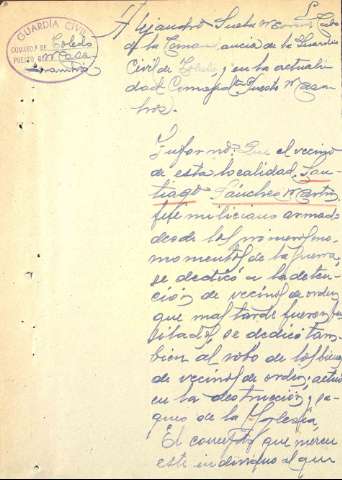 GUARDIA CIVIL
COMAND.ª DE Toledo
PUESTO DE Masa
rambroz
Alejandro
de la Comandancia de la Guardia
Civil de Toledo, y en la actuali
dad Comandante Puesto Masa
broz.
Informo: Que el vecino
de esta localidad, San-
tiago Sánchez Martín,
jefe miliciano armado
desde los primeros mo-
momentos de la guerra,
se dedicó a la deten-
ción de vecinos de orden
que mas tarde fueron fu
silados, se dedicó tam-
bién al robo de los bienes
de vecinos de orden, actuó
en la destrucción y sa-
queo de la Iglesia,
El concepto que merece
este individuo al que